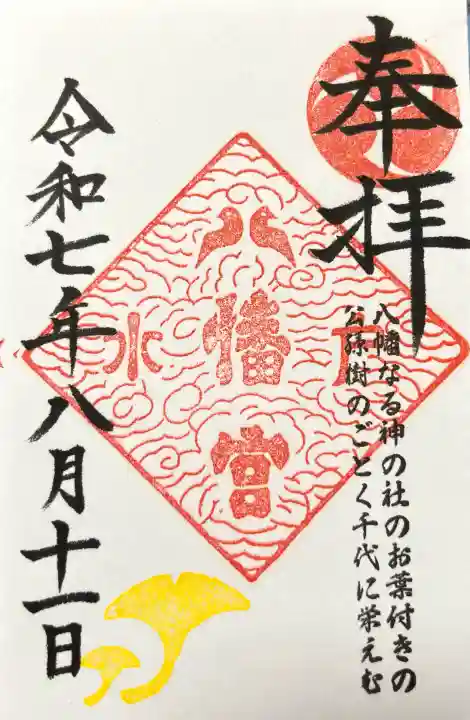 奉拝
八幡なる神の社のお葉付きの
公孫樹のごとく千代に栄えむ
水
幡
宮
令和七年八月十一日